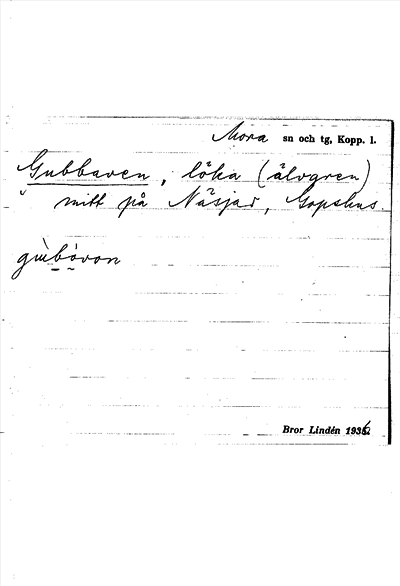 Mora sn och tg, Kopp. l.
Gubbaven, löka (älvgren)
mitt på Näsjar, Gopshus.
gùbòvon
Bror Lindén 1936